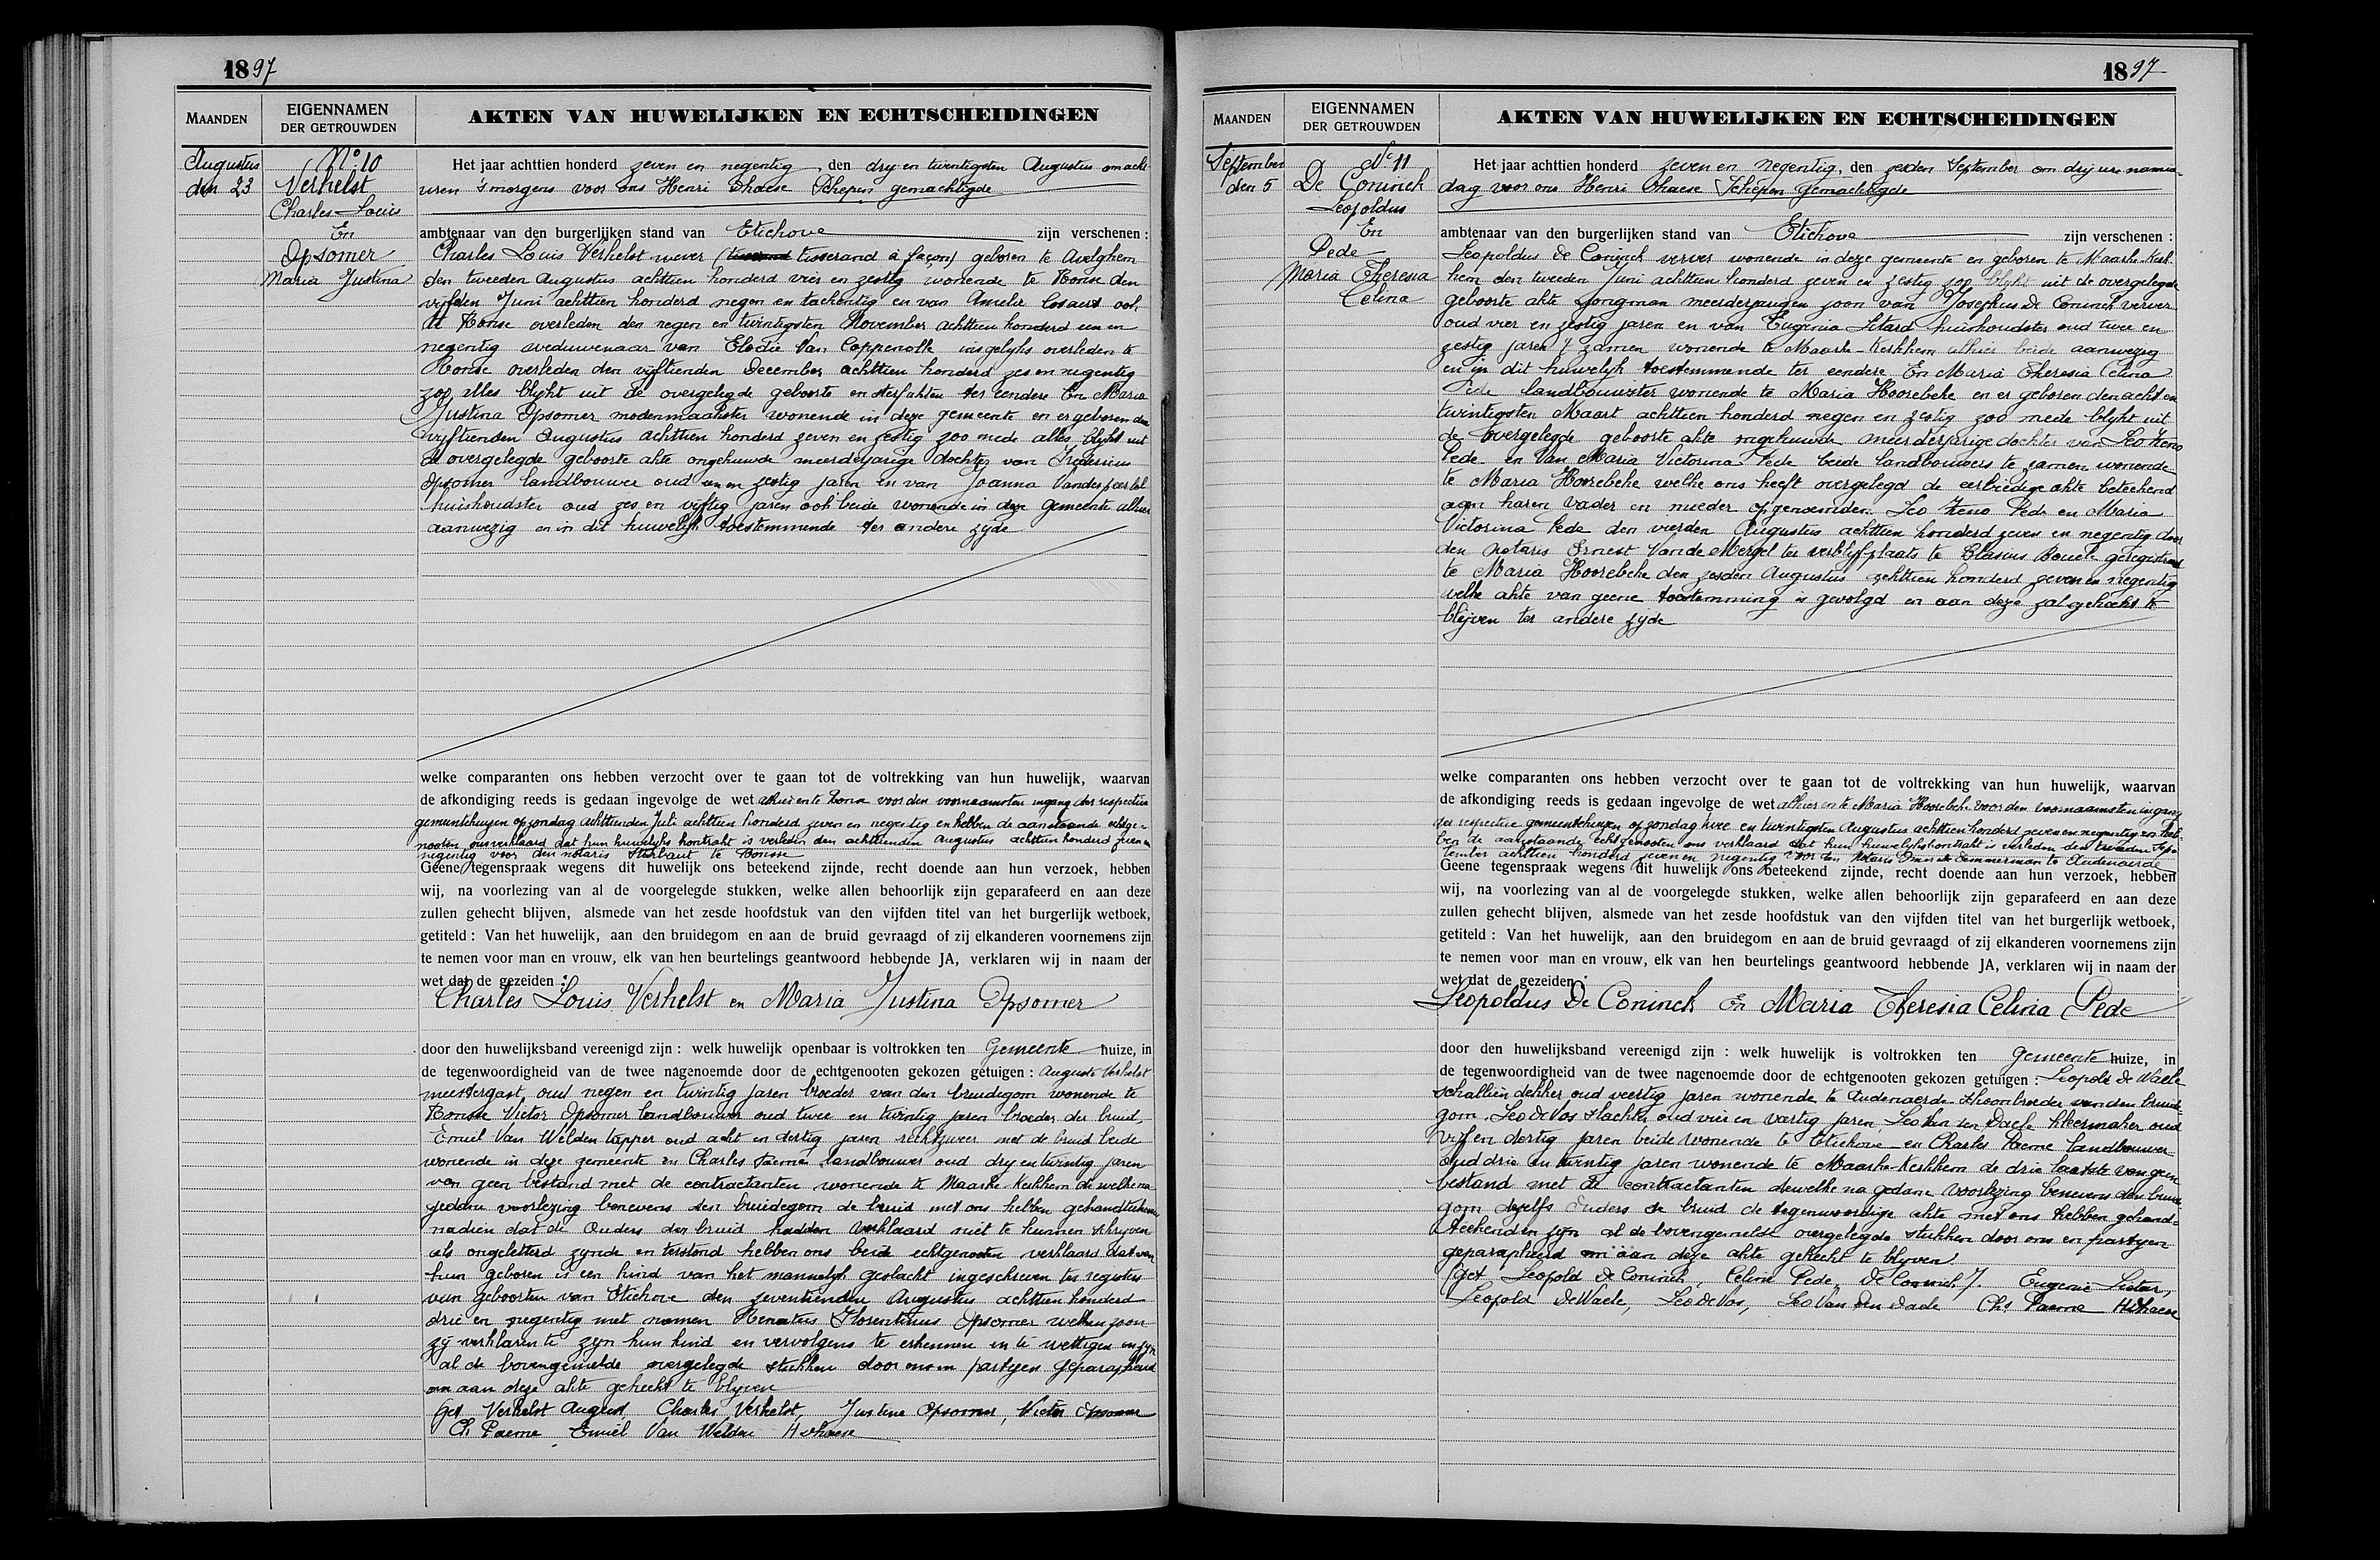 1897
MAANDEN
EIGENNAMEN
DER GETROUWDEN
AKTEN VAN HUWELIJKEN EN ECHTSCHEIDINGEN
Augustus
den 23
No 10
Verhelst
Charles-Louis
En
Opsomer
Maria Justina
Het jaar achttien honderd zeven en negentig, den dry en twintigsten Augustus om acht
uren 's morgens voor ons Henri Dhaese Schepen gemachtigde
ambtenaar van den burgerlijken stand van Etichove zijn verschenen :
Charles Louis Verhelst wever (tisserand à façon) geboren te Avelghem
den tweeden Augustus achttien honderd vier en zestig wonende te Ronse den
vijfden Juni achttien honderd negen en tachentig en van Amelie Cosaert ook
te Ronse overleden den negen en twintigsten November achttien honderd een en
negentig weduwenaar van Elodie Van Coppenolle insgelyks overleden te
Ronse overleden den vijftienden December achttien honderd zes en negentig
zoo alles blykt uit de overgelegde geboorte en sterfakten ter eendere En Maria
Justina Opsomer modenmaakster wonende in deze gemeente en er geboren den
vijftienden Augustus achttien honderd zeven en zestig zoo mede alles blykt uit
de overgelegde geboorte akte ongehuwde meerderjarige dochter van
Opsomer landbouwer oud een en zestig jaren en van Joanna
huishoudster oud zes en vijftig jaren ook beide wonende in deze gemeente alhier
aanwezig en in dit huwelyk toestemmende ter andere zyde
welke comparanten ons hebben verzocht over te gaan tot de voltrekking van hun huwelijk, waarvan
de afkondiging reeds is gedaan ingevolge de wet alhier en te Ronse voor den voornaamsten ingang der respectieve
gemeentehuizen op zondag achttienden Juli achttien honderd zeven en negentig en hebben de aanstaande echtge-
nooten ons verklaard dat hun huwelyks kontrakt is verleden den achttienden Augustus achttien honderd zeven en
negentig voor den notaris Storbaut te Ronse
Geene tegenspraak wegens dit huwelijk ons beteekend zijnde, recht doende aan hun verzoek, hebben
wij, na voorlezing van al de voorgelegde stukken, welke allen behoorlijk zijn geparafeerd en aan deze
zullen gehecht blijven, alsmede van het zesde hoofdstuk van den vijfden titel van het burgerlijk wetboek,
getiteld : Van het huwelijk, aan den bruidegom en aan de bruid gevraagd of zij elkanderen voornemens zijn
te nemen voor man en vrouw, elk van hen beurtelings geantwoord hebbende JA, verklaren wij in naam der
wet dat de gezeiden :
Charles Louis Verhelst en Maria Justina Opsomer
door den huwelijksband vereenigd zijn : welk huwelijk openbaar is voltrokken ten Gemeente huize, in
de tegenwoordigheid van de twee nagenoemde door de echtgenooten gekozen getuigen : Auguste Verhelst
meestergast oud negen en twintig jaren broeder van den bruidegom wonende te
Ronse Victor Opsomer landbouwer oud twee en twintig jaren broeder der bruid,
Emiel Van Welden tapper oud acht en dertig jaren schoonbroer met de bruid beide
wonende in deze gemeente en Charles Paeme landbouwer oud dry en twintig jaren
van geen bestand met de contractanten wonende te Maarke-Kerkhem dewelke na
gedane voorlezing benevens den bruidegom de bruid met ons hebben gehandteekend
nadien dat de Ouders der bruid hadden verklaard niet te kunnen schryven
als ongeletterd zynde en terstond hebben ons beide echtgenooten verklaard dat van
hun geboren is een kind van het mannelyk geslacht ingeschreven ter registers
van geboorten van Etichove den zeventienden Augustus achttien honderd
drie en negentig met namen Renatus Florentinus Opsomer welken zoon
zy verklaren te zyn hun kind en vervolgens te erkennen en te wettigen en zyn
al de bovengemelde overgelegde stukken door ons en partyen geparapheerd
om aan deze akte gehecht te blyven
Get Verhelst August, Charles Verhelst, Justine Opsomer, Victor Opsomer
Ch Paeme Emiel Van Welden H Dhaese
1897
MAANDEN
EIGENNAMEN
DER GETROUWDEN
AKTEN VAN HUWELIJKEN EN ECHTSCHEIDINGEN
September
den 5
No 11
De Coninck
Leopoldus
En
Pede
Maria Theresia
Celina
Het jaar achttien honderd zeven en negentig, den September om drij ure namid-
dag voor ons Henri Dhaese Schepen gemachtigde
ambtenaar van den burgerlijken stand van Etichove zijn verschenen :
Leopoldus De Coninck verver wonende in deze gemeente en geboren te Maarke-Kerk-
hem den tweeden Juni achttien honderd zeven en zestig zoo blykt uit de overgelegde
geboorte akte jongman meerderjarigen zoon van Josephus De Coninck verver
oud vier en zestig jaren en van Eugenia huishoudster oud twee en
zestig jaren t' zamen wonende te Maarke-Kerkhem alhier beide aanwezig
en in dit huwelyk toestemmende ter eendere En Maria Theresia Celina
Pede landbouwster wonende te Maria Hoorebeke en er geboren den acht en
twintigsten Maart achttien honderd negen en zestig zoo mede blykt uit
de overgelegde geboorte akte ongehuwde meerderjarige dochter van Leo Zeno
Pede en van Maria Victorina Pede beide landbouwers te zamen wonende
te Maria Hoorebeke welke ons heeft overgelegd de eerbiedige akte beteekend
aan haren vader en moeder opgenoemden Leo Zeno Pede en Maria
Victorina Pede den vierden Augustus achttien honderd zeven en negentig door
den notaris Ernest Van de Mergel ter verblyfplaats te Blasius Boucle geregistreerd
te Maria Hoorebeke den zesden Augustus achttien honderd zeven en negentig
welke akte van geene toestemming is gevolgd en aan deze zal gehecht te
blijven ter andere zijde
welke comparanten ons hebben verzocht over te gaan tot de voltrekking van hun huwelijk, waarvan
de afkondiging reeds is gedaan ingevolge de wet alhier en te Maria Hoorebeke voor den voornaamsten ingang
der respectieve gemeentehuizen op zondag twee en twintigsten Augustus achttien honderd zeven en negentig en heb-
ben de aanstaande echtgenooten ons verklaard dat hun huwelykskontrakt is verleden den tweeden Sep-
tember achttien honderd zeven en negentig voor den Notaris De Temmerman te Audenaerde
Geene tegenspraak wegens dit huwelijk ons beteekend zijnde, recht doende aan hun verzoek, hebben
wij, na voorlezing van al de voorgelegde stukken, welke allen behoorlijk zijn geparafeerd en aan deze
zullen gehecht blijven, alsmede van het zesde hoofdstuk van den vijfden titel van het burgerlijk wetboek,
getiteld : Van het huwelijk, aan den bruidegom en aan de bruid gevraagd of zij elkanderen voornemens zijn
te nemen voor man en vrouw, elk van hen beurtelings geantwoord hebbende JA, verklaren wij in naam der
wet dat de gezeiden :
Leopoldus De Coninck En Maria Theresia Celina Pede
door den huwelijksband vereenigd zijn : welk huwelijk is voltrokken ten gemeente huize, in
de tegenwoordigheid van de twee nagenoemde door de echtgenooten gekozen getuigen : Leopold De Waele
schaliëndekker oud veertig jaren wonende te Audenaerde schoonbroeder van den bruide-
gom. Leo de Vos slachter oud vier en vartig jaren, Leo Van den Daele kleermaker oud
vijf en dertig jaren beide wonende te Etichove en Charles Paeme landbouwer
oud drie en twintig jaren wonende te Maarke-Kerkhem de drie laatste van geen
bestand met de contractanten dewelke na gedane voorlezing benevens den bruide
gom dezelfs Ouders de bruid de tegenwoordige akte met ons hebben gehand-
teekend en zijn al de bovengemelde overgelegde stukken door ons en partyen
geparapheerd om aan deze akte gehecht te blyven
Get Leopold De Coninck, Celine Pede, De Coninck J. Eugenie
Leopold DeWaele, Leo de Vos, Leo Van den daele Chs Paeme H Dhaese